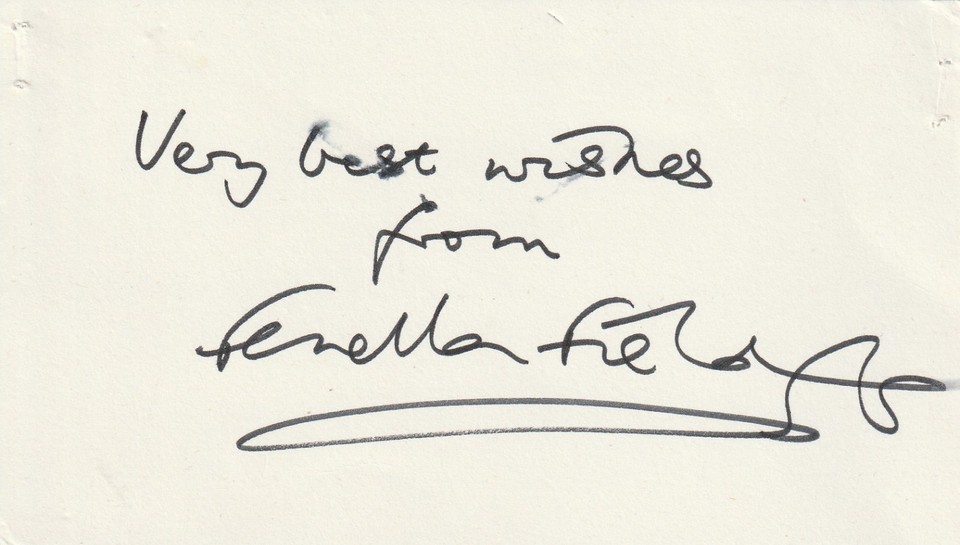 Very best wishes
from
Fenella Fielding